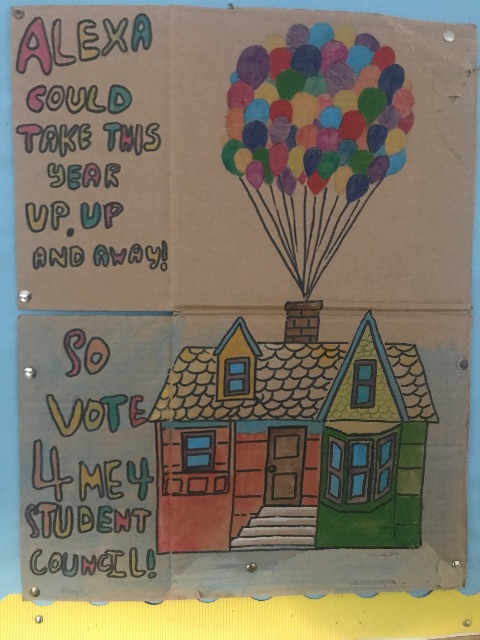 ALEXA
COULD
TAKE THIS
YEAR
UP, UP
AND AWAY!
SO
VOTE
4 ME 4
STUDENT
COUNCIL!